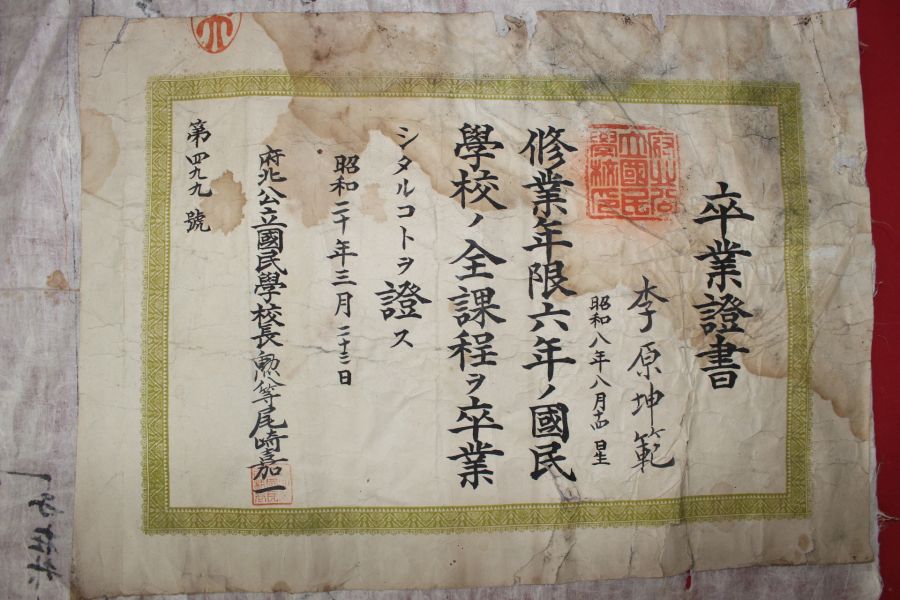 卒業證書
李原坤範
昭和八年八月十四日生
府北公
立國民
學校印
修業年限六年ノ國民
學校ノ全課程ヲ卒業
シタルコトヲ證ス
昭和二十年三月二十三日
府北公立國民學校長勲八等尾崎嘉一
第四九九號